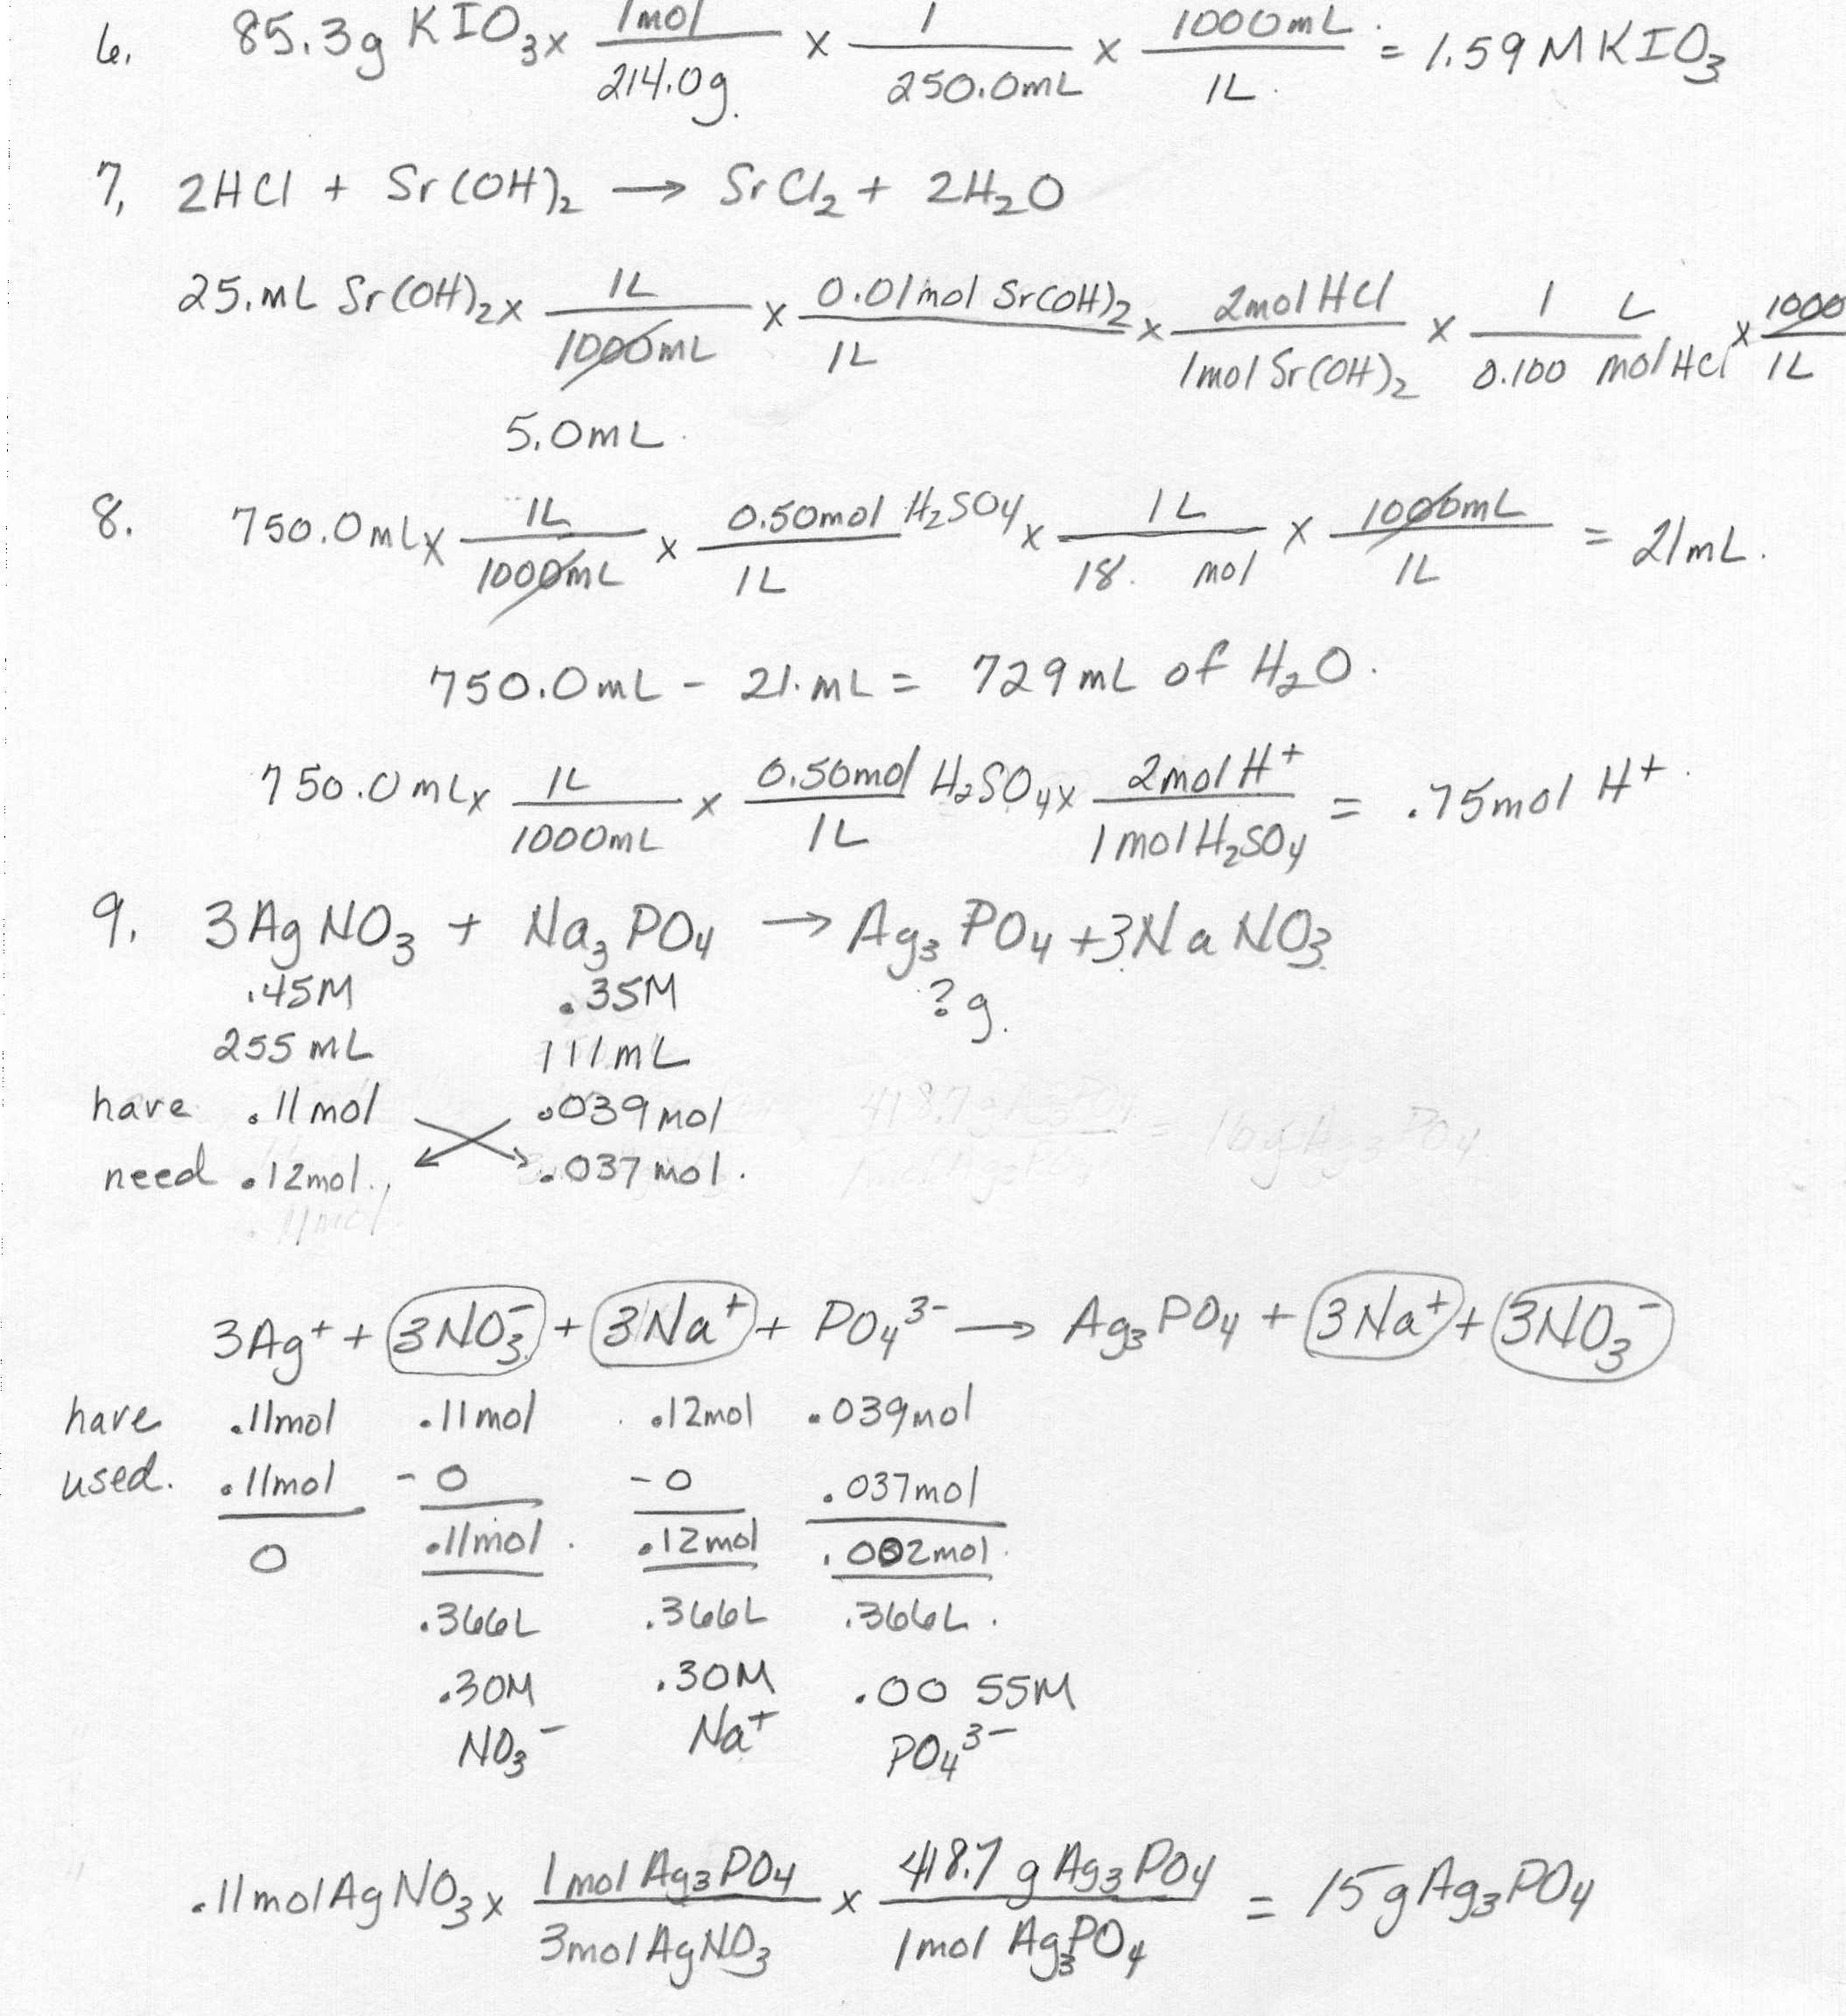 6. 85.3g KIO₃ x 1mol / 214.0g x 1 / 250.0mL x 1000mL / 1L = 1.59 M KIO₃
7, 2HCl + Sr(OH)₂ → SrCl₂ + 2H₂O
25.mL Sr(OH)₂ x 1L / 1000mL x 0.01mol Sr(OH)₂ / 1L x 2mol HCl / 1mol Sr(OH)₂ x 1 L / 0.100 mol HCl x 1000 / 1L
5.0mL
8. 750.0mL x 1L / 1000mL x 0.50mol H₂SO₄ / 1L x 1L / 18. mol x 1000mL / 1L = 21mL.
750.0mL - 21.mL = 729mL of H₂O.
750.0mL x 1L / 1000mL x 0.50mol H₂SO₄ / 1L x 2mol H⁺ / 1mol H₂SO₄ = .75mol H⁺
9. 3AgNO₃ + Na₃PO₄ → Ag₃PO₄ + 3NaNO₃
.45M .35M ?g.
255 mL 111mL
have .11mol .039mol
need .12mol. .037mol.
3Ag⁺ + 3NO₃⁻ + 3Na⁺ + PO₄³⁻ → Ag₃PO₄ + 3Na⁺ + 3NO₃⁻
have .11mol .11mol .12mol .039mol
used. .11mol - 0 - 0 .037mol
0 .11mol .12mol .002mol
.366L .366L .366L
.30M .30M .0055M
NO₃⁻ Na⁺ PO₄³⁻
.11molAgNO₃ x 1mol Ag₃PO₄ / 3mol AgNO₃ x 418.7 g Ag₃PO₄ / 1mol Ag₃PO₄ = 15gAg₃PO₄